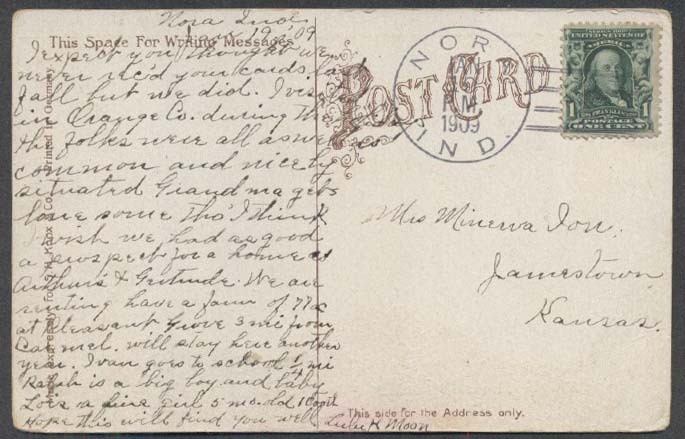 Nora Ind.
Jan 19-09
This Space For Writing Messages.
I expect you thought we
never rec'd your cards last
fall but we did. I visited
in Orange Co. during the
the folks were all as well as
common and nicely
situated Grandma gets
lone some tho' I think
I wish we had as good
a prospect for a home as
Arthur's & Gertrude. We are
renting have a farm of 77a
at Pleasant Grove 3 mi from
Carmel. will stay here another
year. Ivan goes to school 1/4 mi
Ralph is a big boy and baby
Lois a fine girl 5 mo. old
Hope this will find you well
Lulu K Moon
Printed in Germany
POST CARD
NORA
JAN
19
PM
1909
IND.
SERIES 1902
UNITED STATES OF
AMERICA
FRANKLIN
1
POSTAGE
ONE CENT
1
Mrs Minerva Ion.
Jamestown
Kansas.
This side for the Address only.